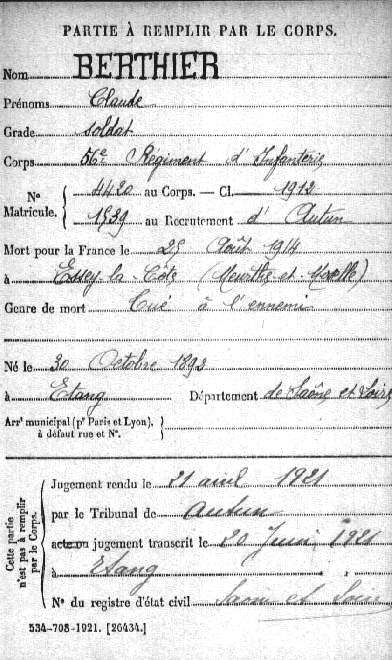 PARTIE À REMPLIR PAR LE CORPS.
Nom BERTHIER
Prénoms Claude
Grade soldat
Corps 56e Régiment d'Infanterie
No Matricule. { 4420 au Corps. — Cl. 1912
1539 au Recrutement d'Autun
Mort pour la France le 25 Août 1914
à Essey-la-Côte (Meurthe-et-Moselle)
Genre de mort Tué à l'ennemi
Né le 30 Octobre 1892
à Etang Département de Saône et Loire
Arrt municipal (pr Paris et Lyon), }
à défaut rue et No. }
Cette partie n'est pas à remplir par le Corps.
Jugement rendu le 21 avril 1921
par le Tribunal de Autun
acte ou jugement transcrit le 20 Juin 1921
à Etang
No du registre d'état civil Saone et Loire
534-708-1921. [26434.]